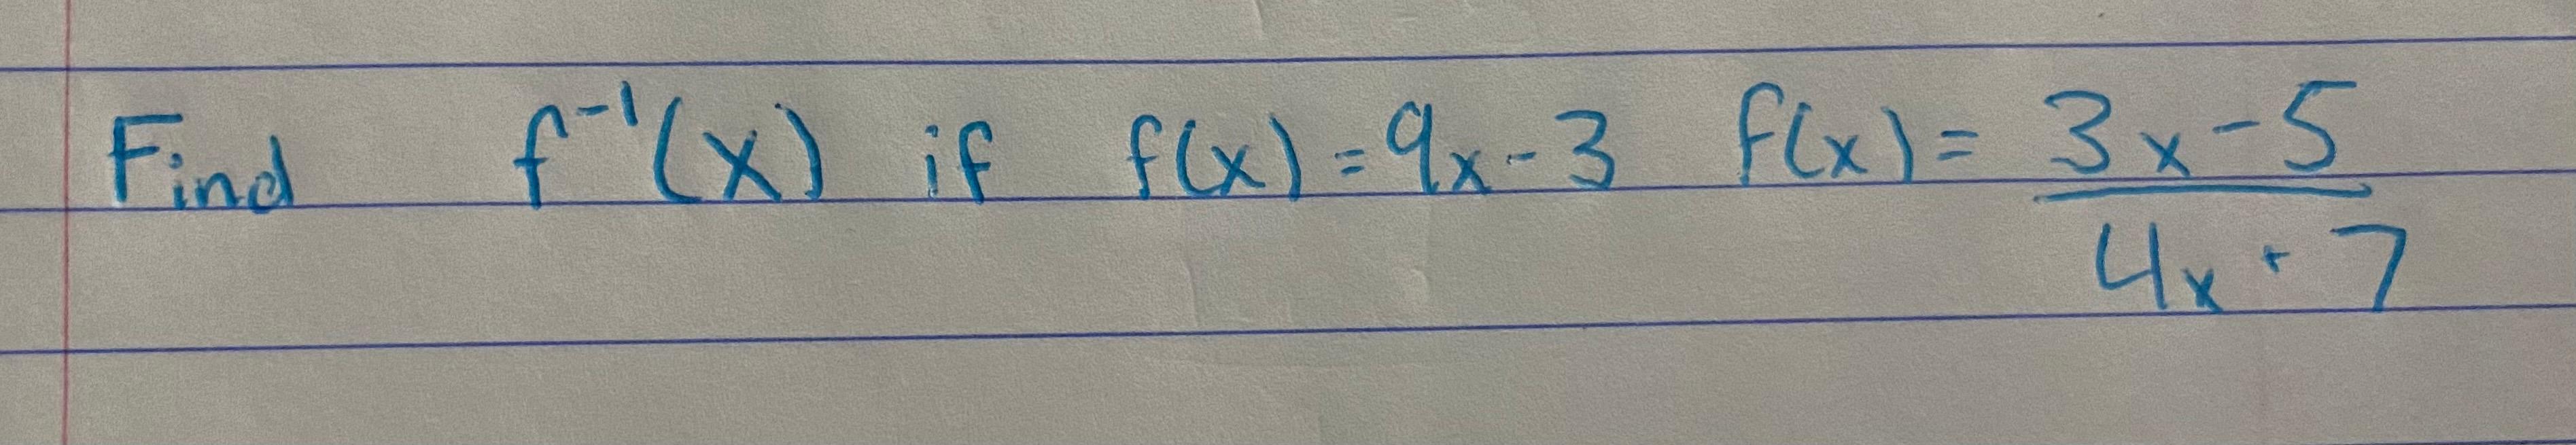 Find f⁻¹(x) if f(x) = 9x - 3 f(x) = 3x - 5
4x + 7